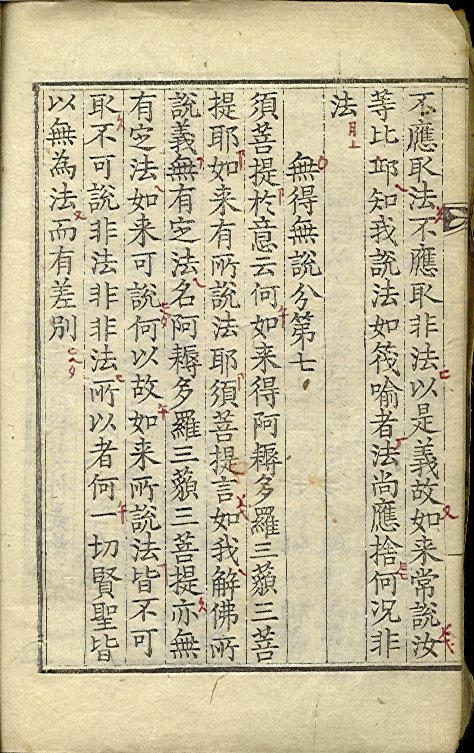 不應取法不應取非法以是義故如来常說汝
等比丘知我說法如筏喻者法尚應捨何况非
法
無得無說分第七
須菩提於意云何如来得阿耨多羅三藐三菩
提耶如来有所說法耶須菩提言如我解佛所
說義無有定法名阿耨多羅三藐三菩提亦無
有定法如来可說何以故如来所說法皆不可
取不可說非法非非法所以者何一切賢聖皆
以無為法而有差別